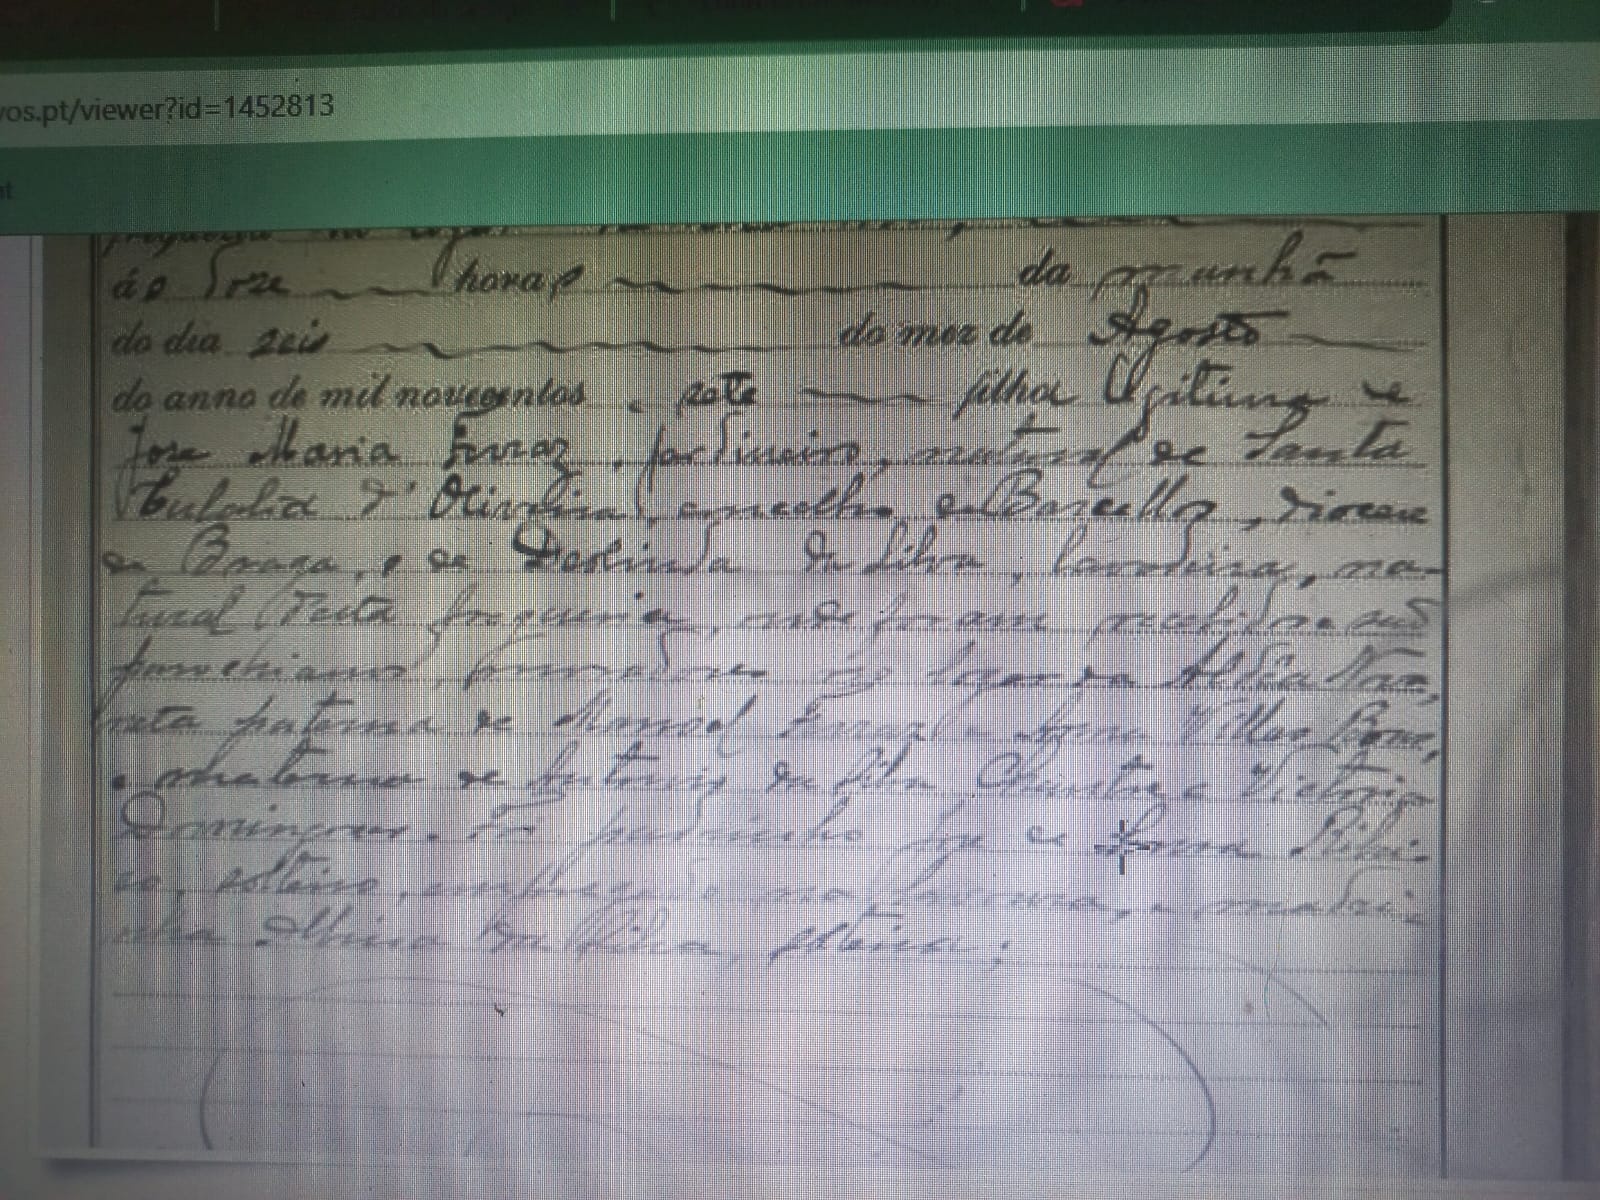 vos.pt/viewer?id=1452813
nt
ás Trez horas da manhã
do dia seis do mez de Agosto
do anno de mil novecentos e sete filha legitima de
Jose Maria Ferraz, jardineiro, natural de Santa
Eulalia d'Oliveira, concelho de Barcellos, diocese
de Braga, e de Deolinda da Silva, lavadeira, na-
tural d'esta freguezia, onde foram recebidos e são
parochianos, moradores no logar da Aldêa Nova,
neta paterna de Manoel Ferraz e Villas Boas,
e materna de Antonio da Silva e Victoria
Domingues. Foi padrinho Ribei-
ro, solteiro, empregado na lavoura, e madri-
nha Albina da Silva, solteira,